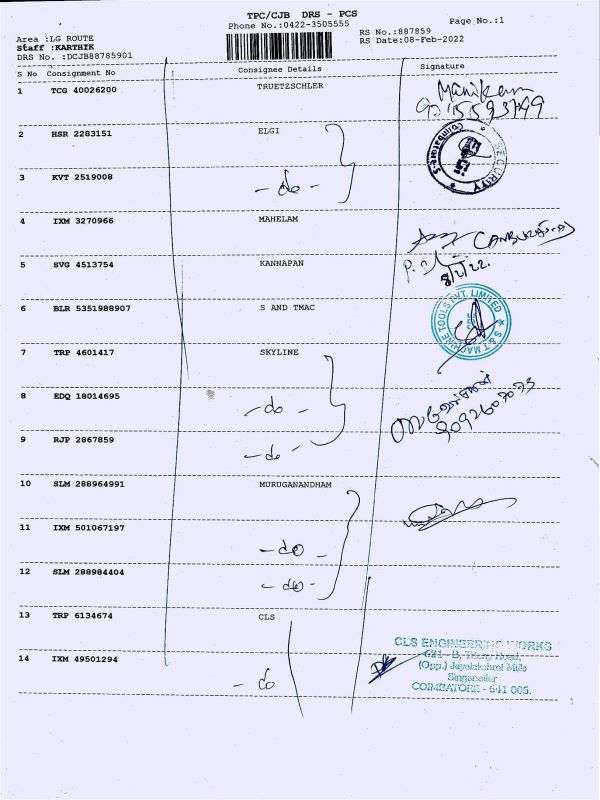 TPC/CJB DRS - PCS
Phone No.:0422-3505555
Page No.:1
Area :LG ROUTE
Staff :KARTHIK
DRS No. :DCJB88785901
RS No.:887859
RS Date:08-Feb-2022
S No Consignment No Consignee Details Signature
1 TCG 40026200 TRUETZSCHLER
2 HSR 2283151 ELGI
SECURITY
Coimbatore
3 KVT 2519008 - do -
4 IXM 3270966 MAHELAM
5 SVG 4513754 KANNAPAN
6 BLR 5351988907 S AND TMAC
S & T MACHINE TOOLS PVT. LIMITED
7 TRP 4601417 SKYLINE
8 EDQ 18014695 - do -
9092607073
9 RJP 2867859 - do -
10 SLM 288964991 MURUGANANDHAM
11 IXM 501067197 - do -
12 SLM 288984404 - do -
13 TRP 6134674 CLS
CLS ENGINEERING WORKS
624 - B, Trichy Road,
(Opp.) Jayalakshmi Mills
Singanallur
COIMBATORE - 641 005.
14 IXM 49501294 - do